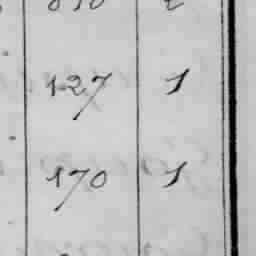 127 1
170 1